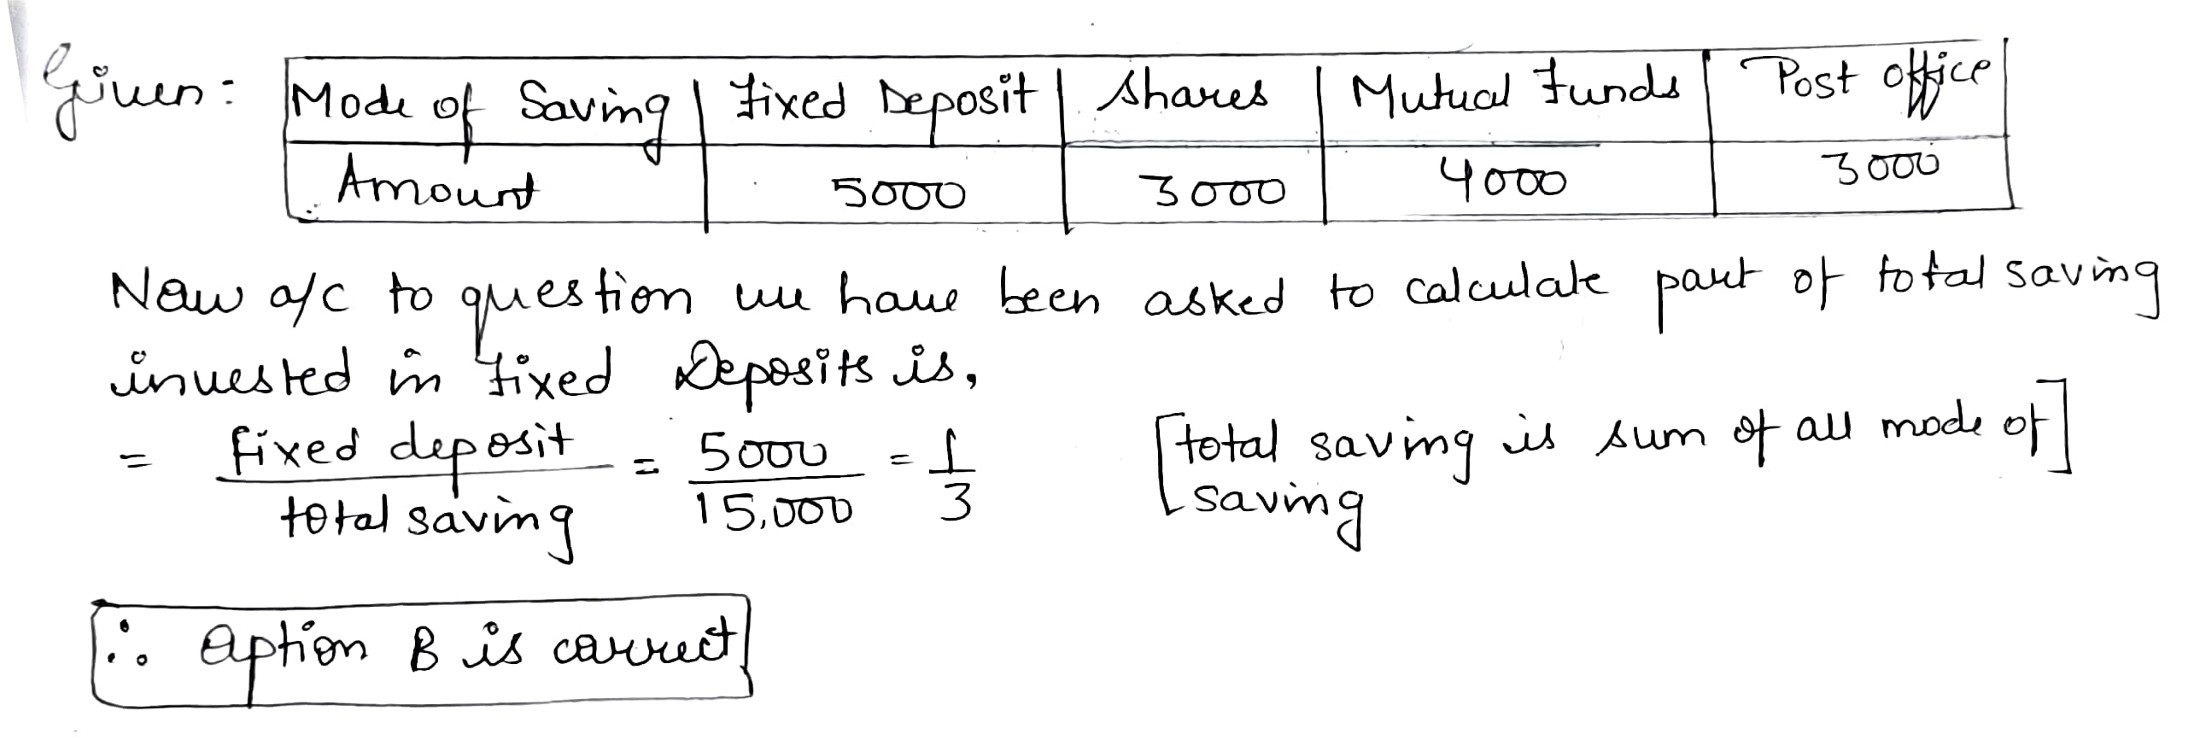 Given:
Mode of Saving | Fixed Deposit | Shares | Mutual Funds | Post office
Amount | 5000 | 3000 | 4000 | 3000
Now a/c to question we have been asked to calculate part of total saving
invested in Fixed Deposits is,
= fixed deposit / total saving = 5000 / 15,000 = 1/3 [total saving is sum of all mode of saving]
∴ Option B is correct